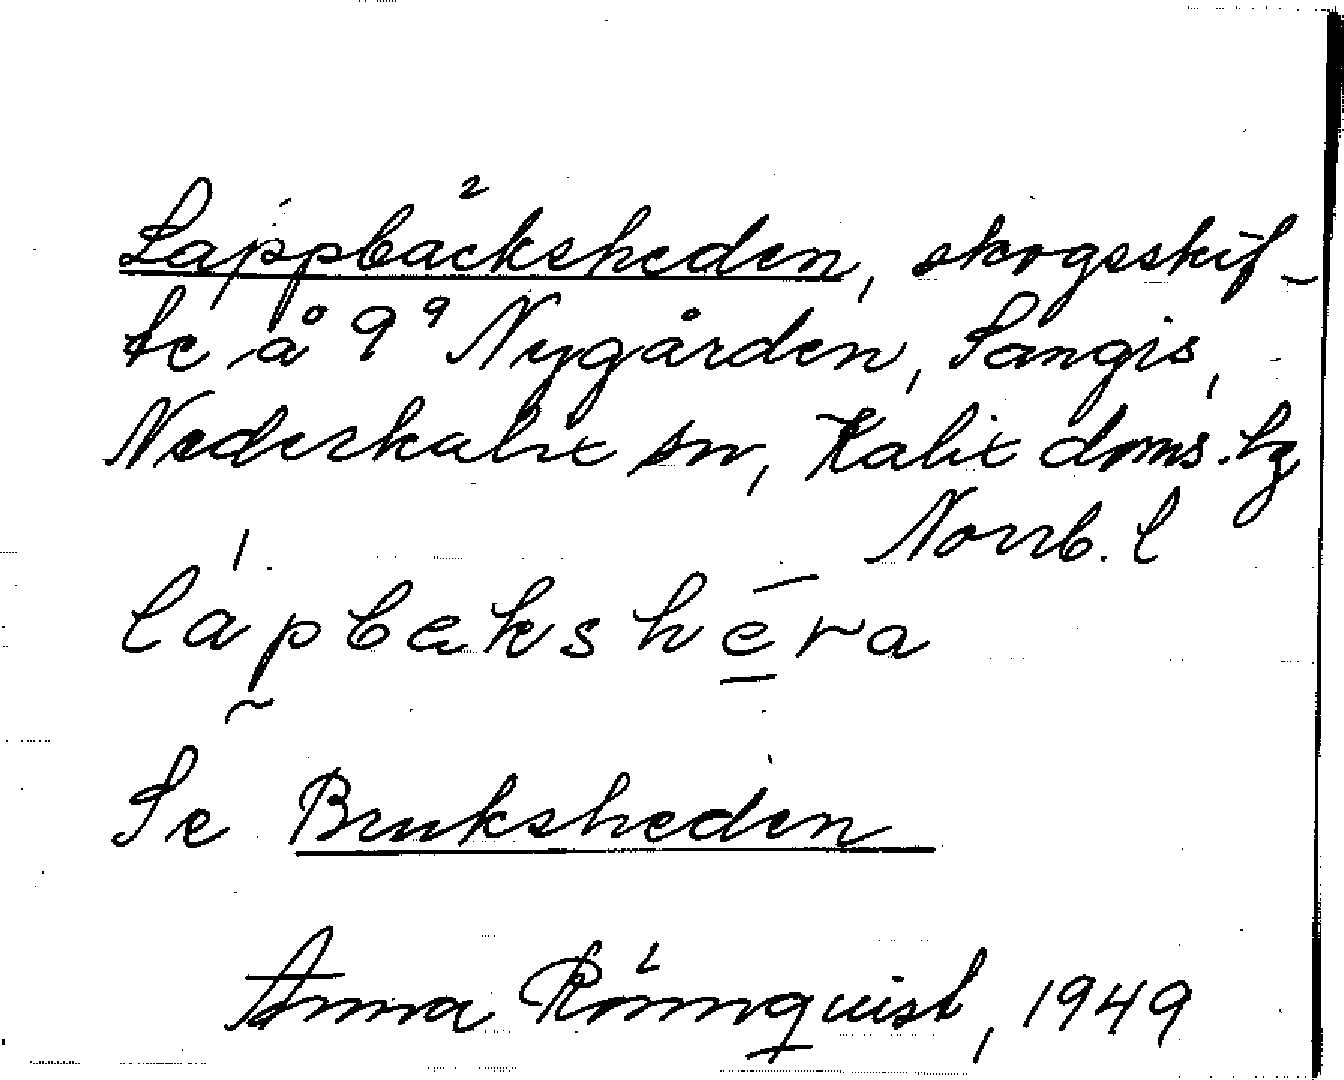 Lappbäcksheden, skogsskif-
te å 9⁹ Nygården, Sangis,
Nederkalix sn, Kalix doms. tg
Norrb. l
lápbækshēra
Se Bruksheden
Anna Rönnquist, 1949